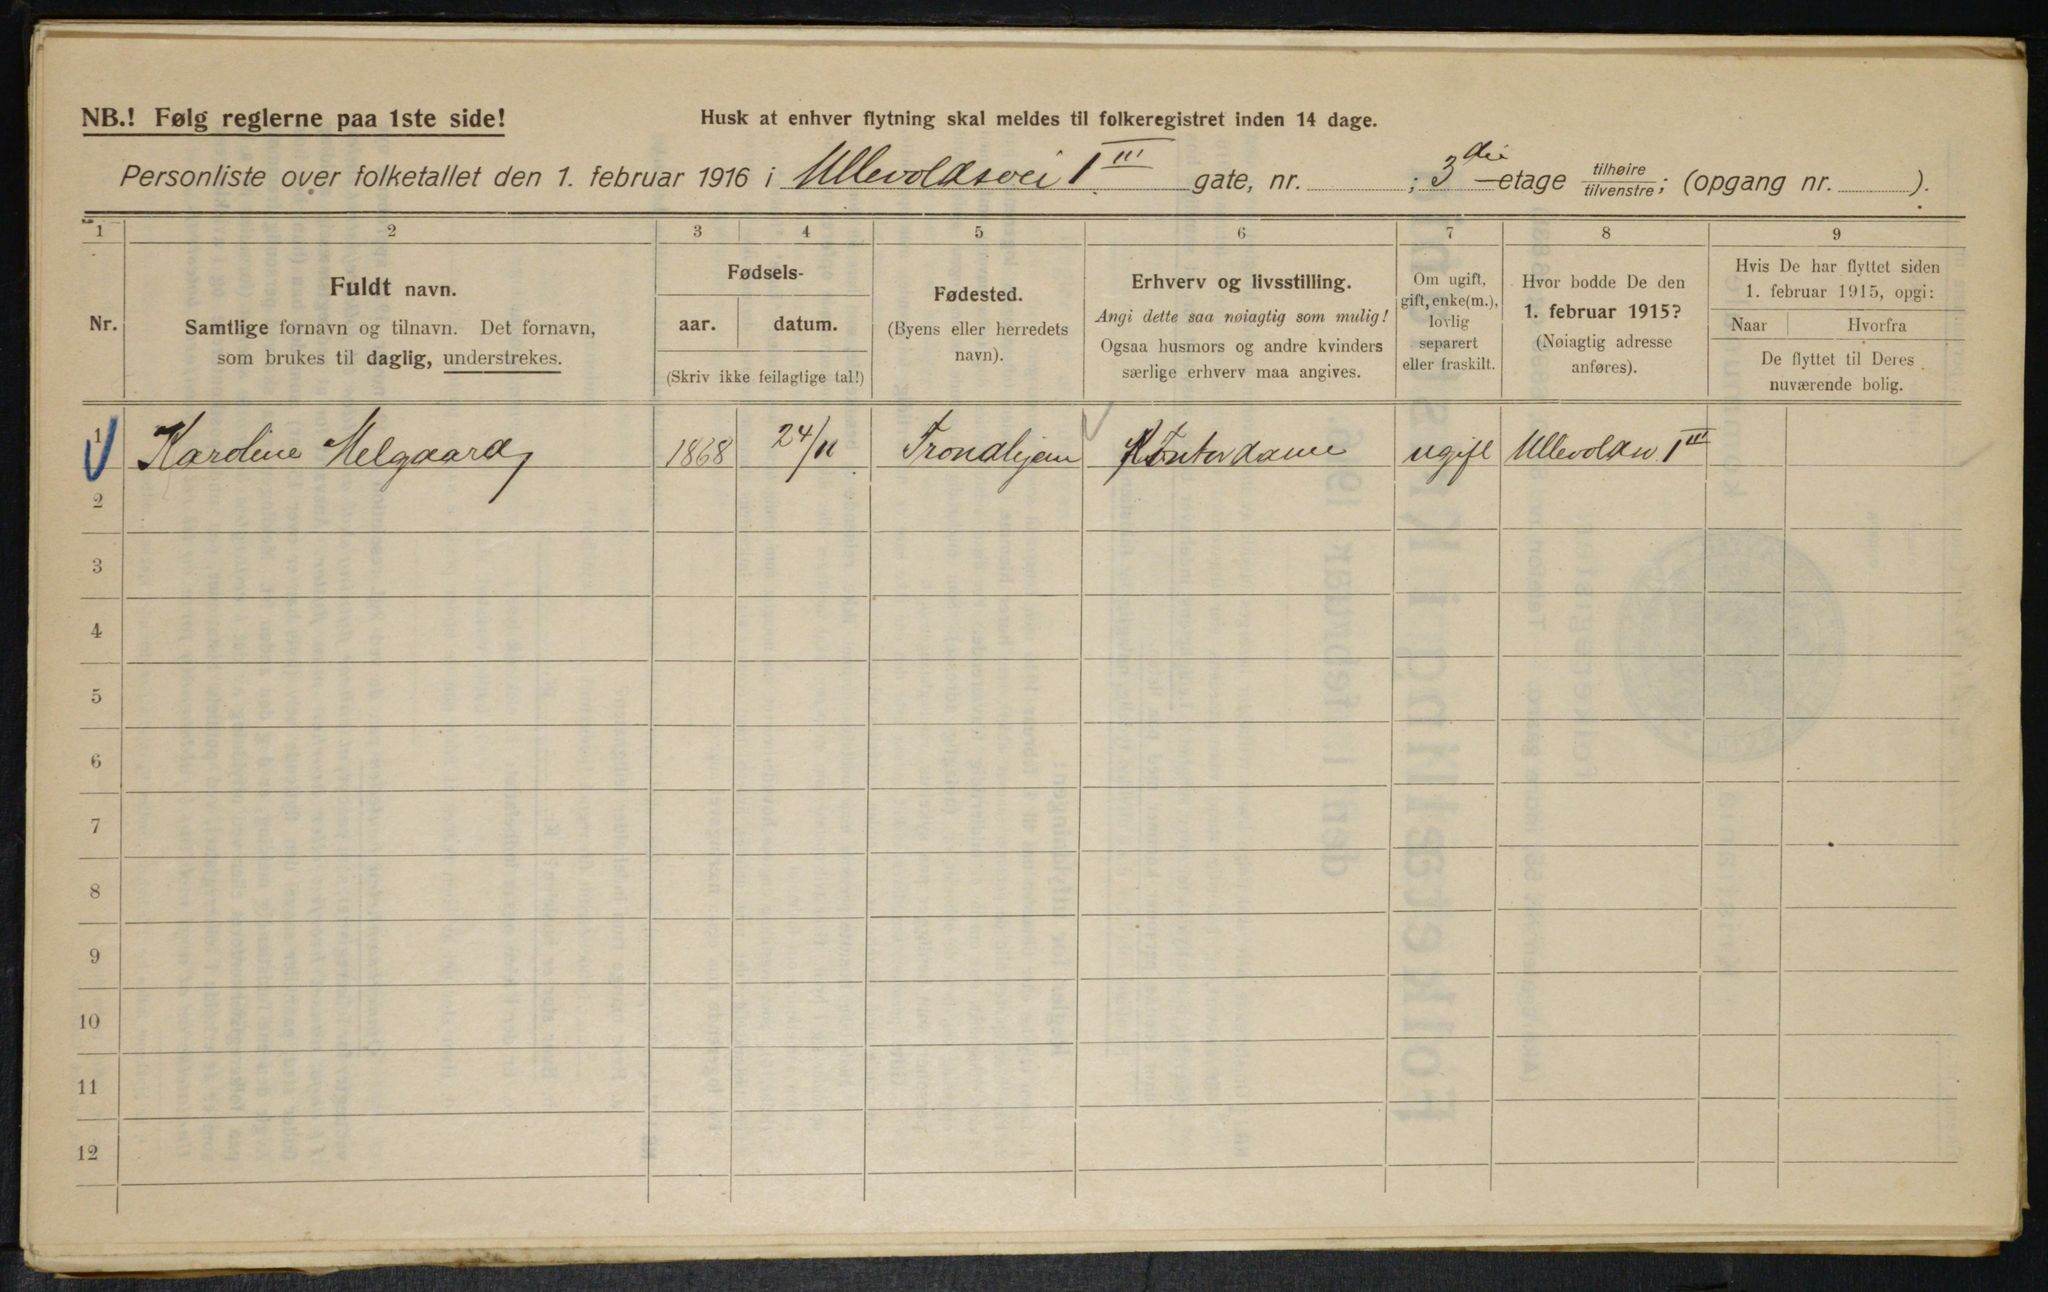 NB.! Følg reglerne paa 1ste side!
Husk at enhver flytning skal meldes til folkeregistret inden 14 dage.
Personliste over folketallet den 1. februar 1916 i Ullevoldsvei 1 III gate, nr. ; 3die etage tilhøire/tilvenstre; (opgang nr. ).
1 2 3 4 5 6 7 8 9
Nr.
Fuldt navn.
Samtlige fornavn og tilnavn. Det fornavn,
som brukes til daglig, understrekes.
Fødsels-
aar. datum.
(Skriv ikke feilagtige tal!)
Fødested.
(Byens eller herredets
navn).
Erhverv og livsstilling.
Angi dette saa nøiagtig som mulig!
Ogsaa husmors og andre kvinders
særlige erhverv maa angives.
Om ugift,
gift, enke(m.),
lovlig
separert
eller fraskilt.
Hvor bodde De den
1. februar 1915?
(Nøiagtig adresse
anføres).
Hvis De har flyttet siden
1. februar 1915, opgi:
Naar Hvorfra
De flyttet til Deres
nuværende bolig.
1 Karoline Melgaard, 1868 24/11 Trondhjem Kontordame ugift Ullevoldsv. 1 III
2
3
4
5
6
7
8
9
10
11
12